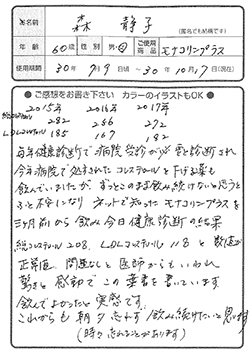 お名前 森 静子 (匿名でも結構です)
年齢 60歳 性別 男・女 ご使用商品 モナコリンプラス
使用期間 30年7月9日頃 ~ 30年10月17日(現在)
●ご感想をお書き下さい カラーのイラストもOK●
2015年 2016年 2017年
総コレステロール 282 256 272
LDLコレステロール 185 167 182
毎年健康診断で病院受診が必要と診断され
今年病院で処方されたコレステロールを下げる薬も
飲んでいましたが、ずっとこのまま飲み続けないと思うと
ふと不安になり ネットで知ったモナコリンプラスを
三ヶ月前から飲み今日健康診断の結果
総コレステロール208、LDLコレステロール118と数値が
正常値、問題なしと医師からもいわれ
驚きと感動でこの葉書を書いています
飲んでよかったと実感です。
これからも朝夕忘れず飲み続けたいと思います
(時々忘れることがあります)